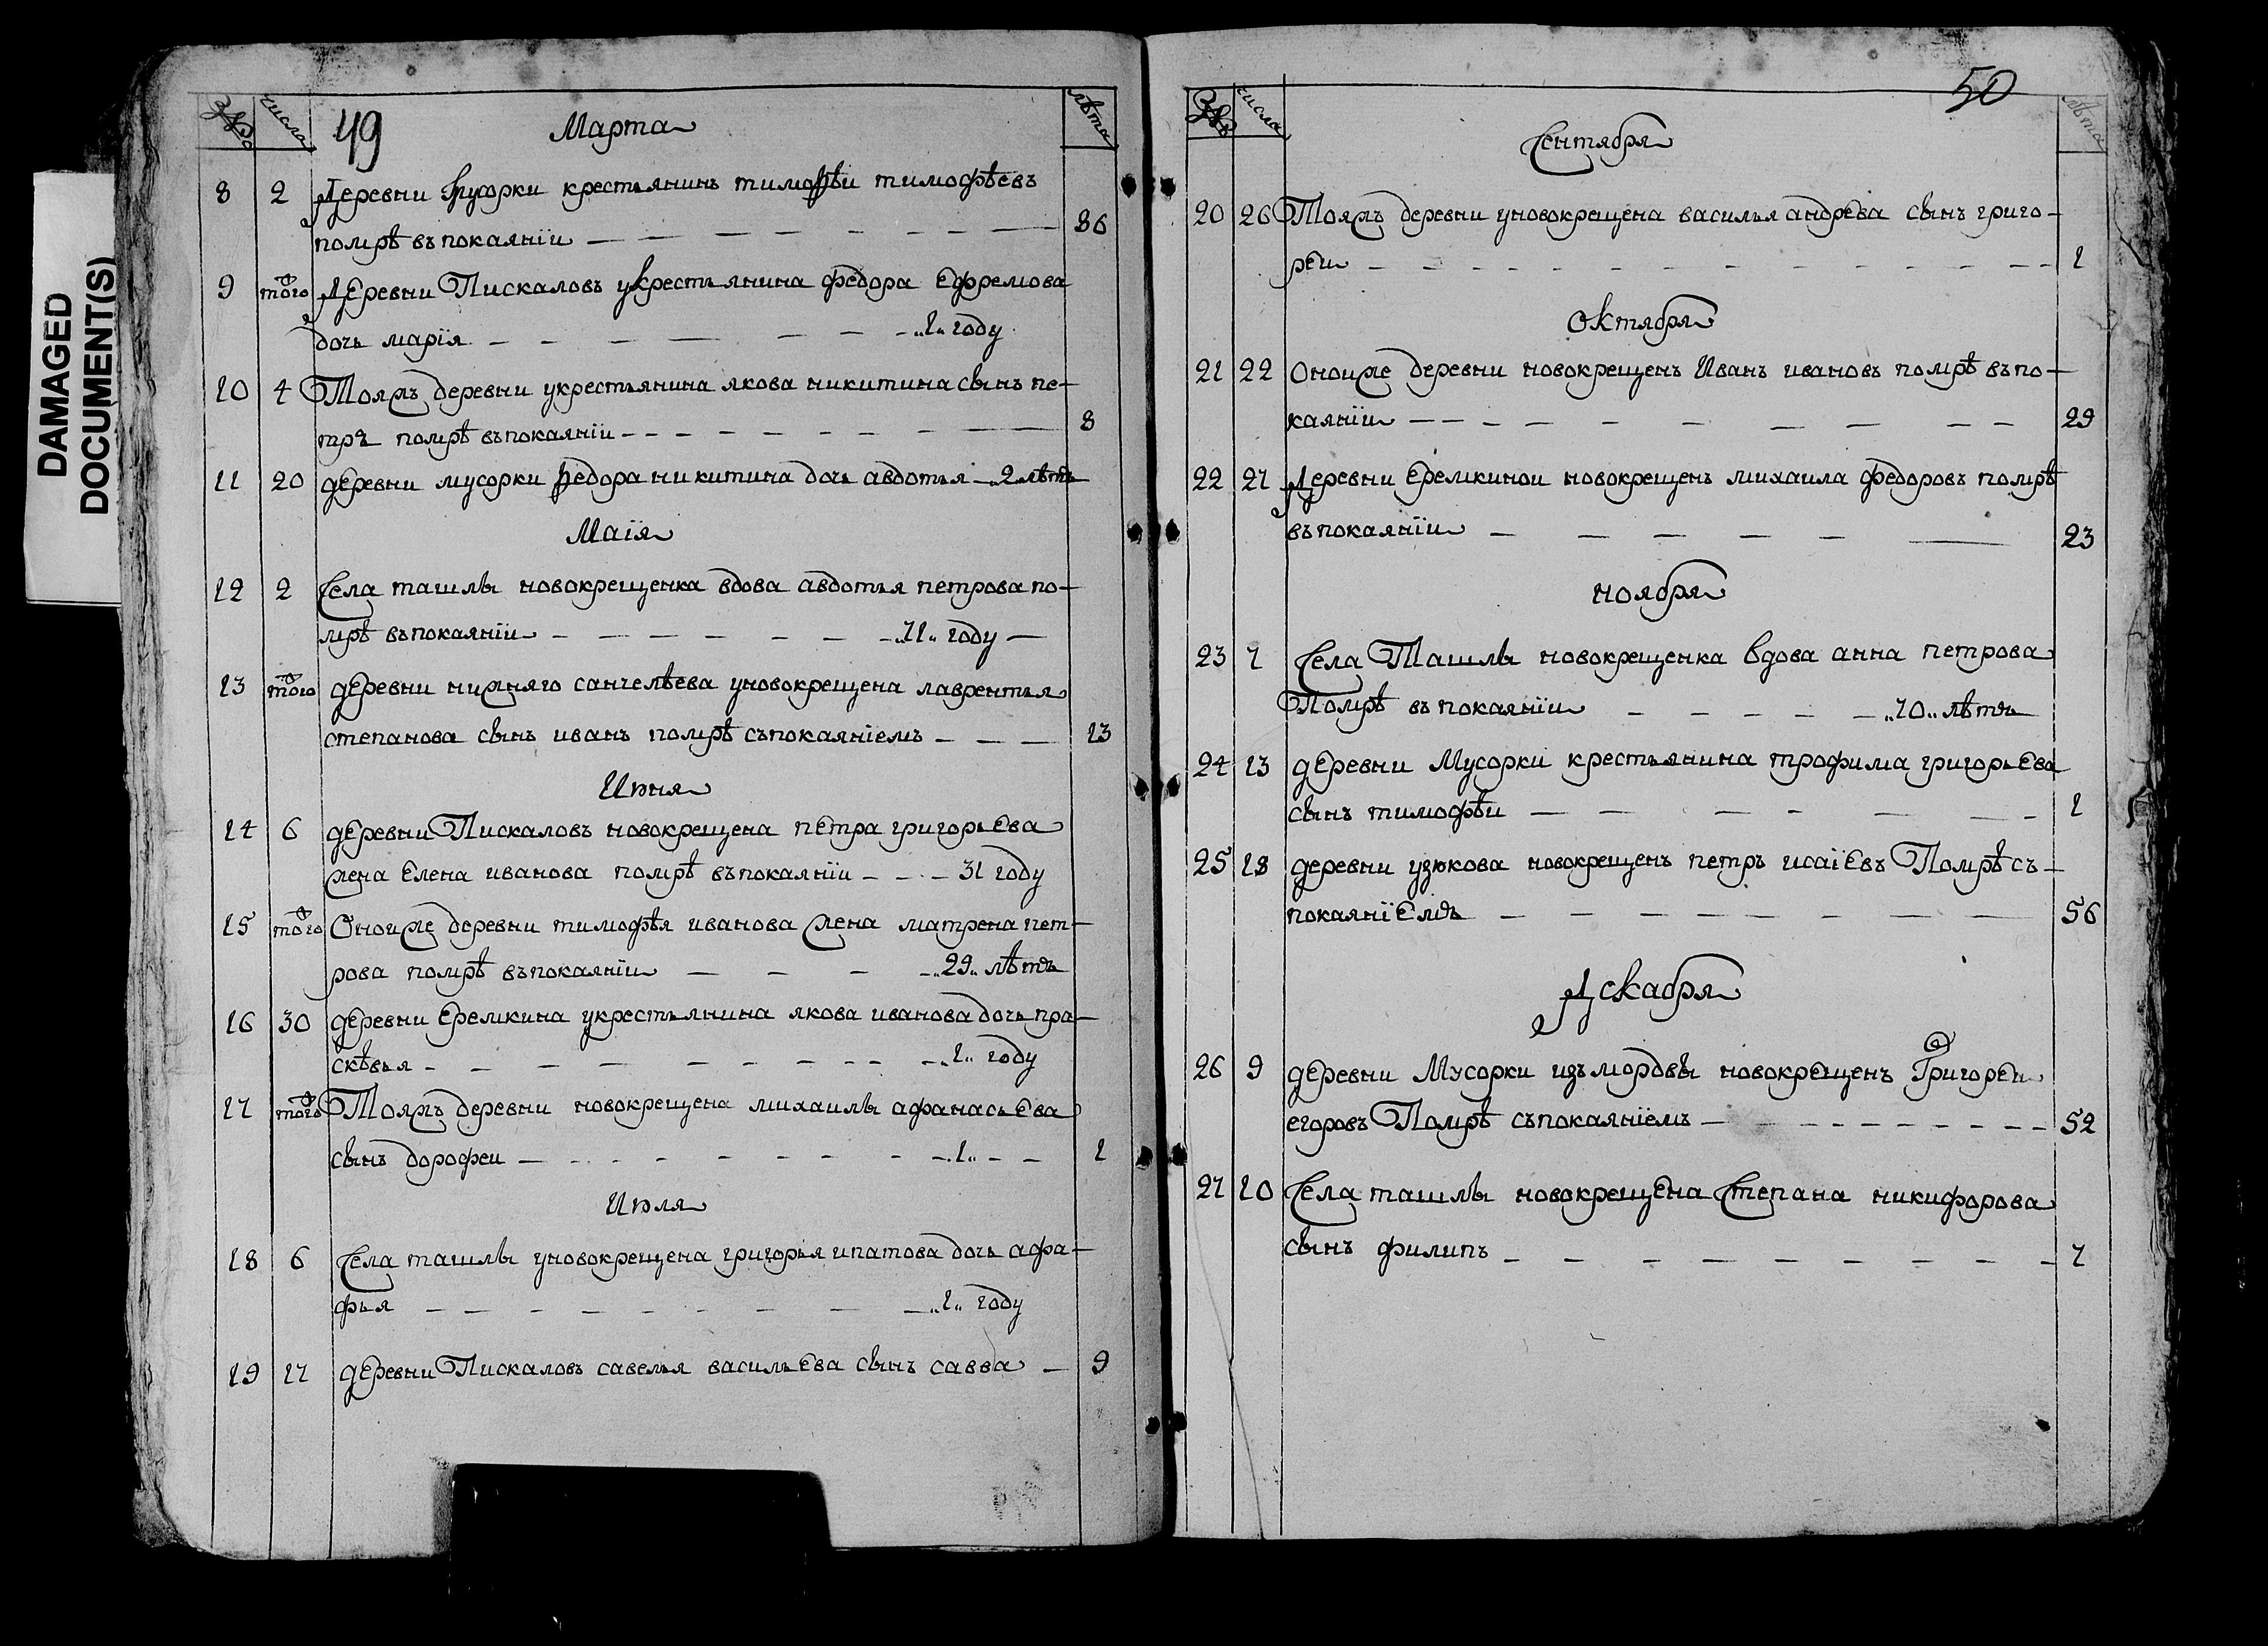 DAMAGED
DOCUMENT(S)
числа 49 Марта лѣта
8 2 Деревни Мусорки крестьянинъ тимофѣи тимофѣевъ
помрѣ въ покаянїи 86
9 того Деревни Пискаловъ у крестьянина федора Ефремова
дочь марїя 1 году
10 4 Тояжъ деревни у крестьянина якова никитина сынъ пе-
тръ помрѣ въ покаянїи 8
11 20 деревни мусорки федора никитина дочь авдотья 2 лѣтъ
Маїя
12 2 Села ташлы новокрещенка вдова авдотья петрова по-
мрѣ въ покаянїи 71 году
13 того деревни нижняго санчелѣева у новокрещена лаврентья
степанова сынъ иванъ помрѣ съ покаянїемъ 13
Июня
14 6 деревни Пискаловъ новокрещена петра григорьева
жена Елена иванова помрѣ въ покаянїи 31 году
15 того Оноиже деревни тимофѣя иванова жена матрена пет-
рова помрѣ въ покаянїи 29 лѣтъ
16 30 деревни Еремкина у крестьянина якова иванова дочь пра-
сковья 1 году
17 того Тояжъ деревни новокрещена михаилы афанасьева
сынъ дорофеи 1 1
Июля
18 6 Села ташлы у новокрещена григорья ипатова дочь ага-
фья 1 году
19 17 деревни Пискаловъ савелья васильева сынъ савва 9
числа 50 лѣта
Сентября
20 26 Тояжъ деревни у новокрещена василья андрѣва сынъ григо-
реи 1
Октября
21 22 Оноиже деревни новокрещенъ Иванъ ивановъ помрѣ въ по-
каянїи 29
22 27 Деревни Еремкинои новокрещенъ михаила федоровъ помрѣ
въ покаянїи 23
ноября
23 7 Села Ташлы новокрещенка вдова анна петрова
Помрѣ въ покаянїи 70 лѣтъ
24 13 деревни Мусорки крестьянина трофима григорьева
сынъ тимофѣи 1
25 18 деревни узюкова новокрещенъ петръ исаїевъ Помрѣ съ-
покаянїемъ 56
Декабря
26 9 деревни Мусорки изъ мордвы новокрещенъ Григореи
егоровъ Помрѣ съ покаянїемъ 52
27 10 Села ташлы новокрещена Степана никифорова
сынъ филипъ 7